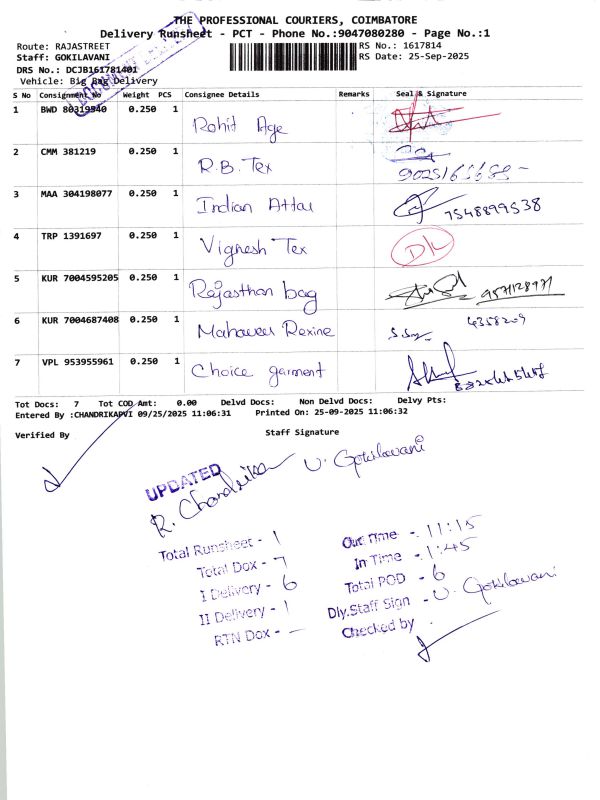 THE PROFESSIONAL COURIERS, COIMBATORE
Delivery Runsheet - PCT - Phone No.:9047080280 - Page No.:1
Route: RAJASTREET RS No.: 1617814
Staff: GOKILAVANI RS Date: 25-Sep-2025
DRS No.: DCJB161781401
Vehicle: Big Bag Delivery
DOCUMENT
S No Consignment No Weight PCS Consignee Details Remarks Seal & Signature
1 BWD 80319540 0.250 1 Rohit Age
2 CMM 381219 0.250 1 R.B. Tex
3 MAA 304198077 0.250 1 Indian Attar 7548899538
4 TRP 1391697 0.250 1 Vignesh Tex
5 KUR 7004595205 0.250 1 Rajasthan bag 9571128971
6 KUR 7004687408 0.250 1 Mahaveer Rexine
7 VPL 953955961 0.250 1 Choice garment
Tot Docs: 7 Tot COD Amt: 0.00 Delvd Docs: Non Delvd Docs: Delvy Pts:
Entered By :CHANDRIKAPVI 09/25/2025 11:06:31 Printed On: 25-09-2025 11:06:32
Verified By Staff Signature
UPDATED
R. Chandrika U. Gokilavani
Total Runsheet - 1 Out Time - 11:15
Total Dox - 7 In Time - 1:45
I Delivery - 6 Total POD - 6
II Delivery - 1 Dly.Staff Sign - U. Gokilavani
RTN Dox - — Checked by